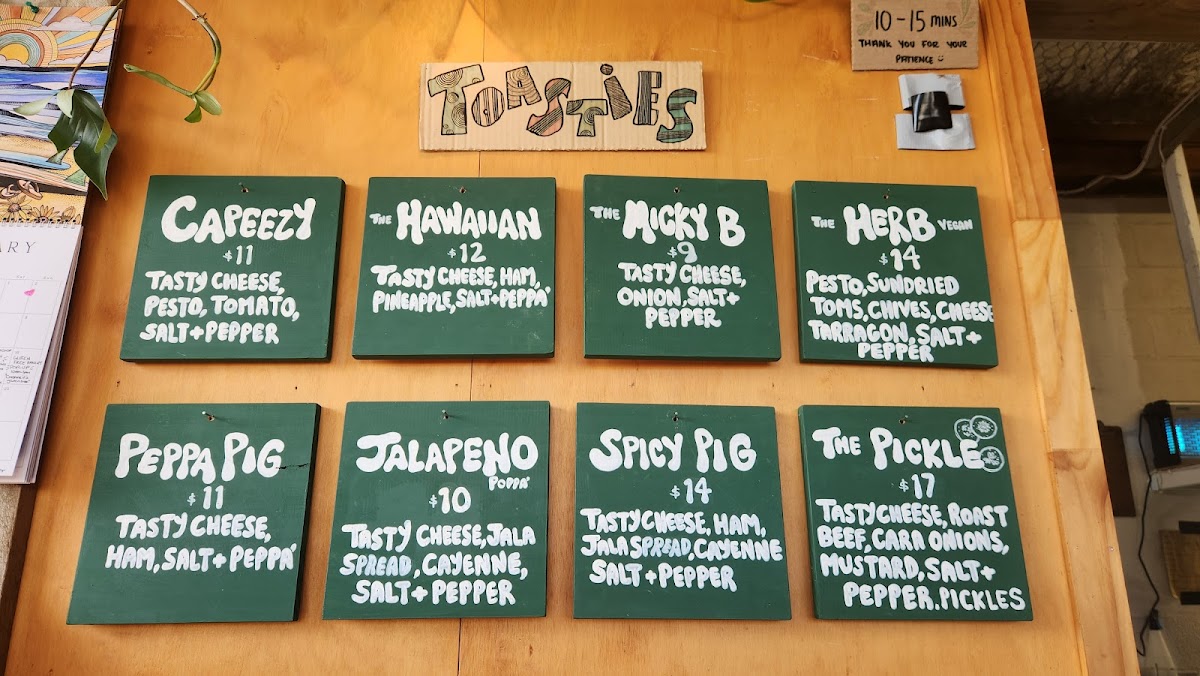 10-15 MINS
THANK YOU FOR YOUR
PATIENCE
TOASTIES
CAPEEZY
$11
TASTY CHEESE,
PESTO, TOMATO,
SALT+PEPPER
THE HAWAIIAN
$12
TASTY CHEESE, HAM,
PINEAPPLE, SALT+PEPPA'
THE MICKY B
$9
TASTY CHEESE,
ONION, SALT+
PEPPER
THE HERB VEGAN
$14
PESTO, SUNDRIED
TOMS, CHIVES, CHEESE
TARRAGON, SALT+
PEPPER
PEPPA PIG
$11
TASTY CHEESE,
HAM, SALT+PEPPA'
JALAPENO
POPPA'
$10
TASTY CHEESE, JALA
SPREAD, CAYENNE,
SALT+PEPPER
SPICY PIG
$14
TASTY CHEESE, HAM,
JALA SPREAD, CAYENNE
SALT+PEPPER
THE PICKLE
$17
TASTY CHEESE, ROAST
BEEF, CARA ONIONS,
MUSTARD, SALT+
PEPPER. PICKLES
ARY